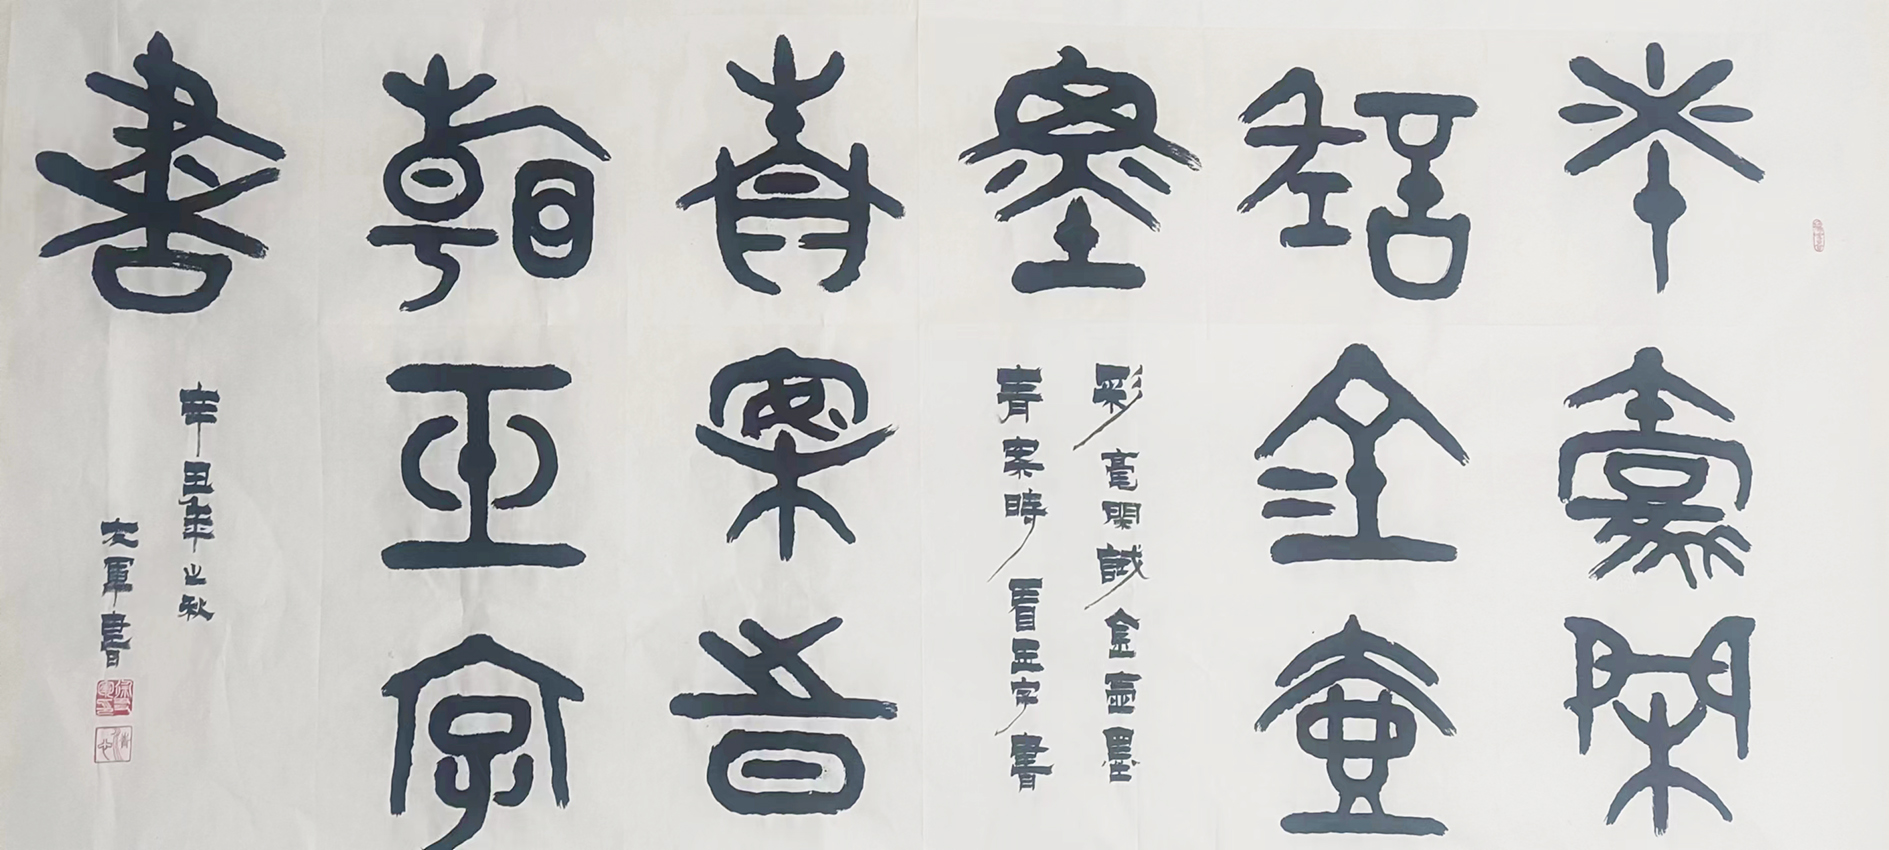 采豪閑
試金壺
墨
彩毫閑試金壺墨
青案時看玉字書
青案時
看玉字
書
辛丑年之秋
軍書